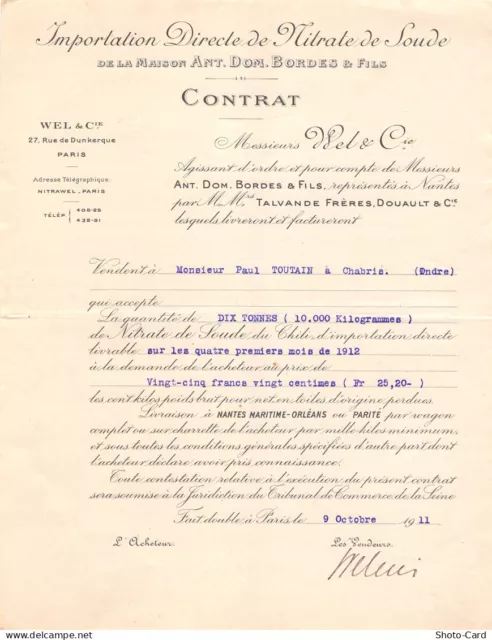 Importation Directe de Nitrate de Soude
DE LA MAISON ANT. DOM. BORDES & FILS
CONTRAT
WEL & CIE
27, Rue de Dunkerque
PARIS
Adresse Télégraphique:
NITRAWEL, PARIS
TÉLÉP. 406-25
439-91
Messieurs Wel & Cie
Agissant d'ordre et pour compte de Messieurs
ANT. DOM. BORDES & FILS, représentés à Nantes
par M.Mrs TALVANDE FRÈRES, DOUAULT & CIE
lesquels livreront et factureront
Vendent à Monsieur Paul TOUTAIN à Chabris. (Indre)
qui accepte
La quantité de DIX TONNES ( 10.000 Kilogrammes )
de Nitrate de Soude du Chili, d'importation directe
livrable sur les quatre premiers mois de 1912
à la demande de l'acheteur au prix de
Vingt-cinq francs vingt centimes ( Fr 25,20- )
les cent kilos poids brut pour net en toiles d'origine perdues.
Livraison à NANTES MARITIME-ORLÉANS ou PARITÉ par wagon
complet ou sur charrette de l'acheteur par mille kilos minimum,
et sous toutes les conditions générales spécifiées d'autre part dont
l'acheteur déclare avoir pris connaissance.
Toute contestation relative à l'exécution du présent contrat
sera soumise à la Juridiction du Tribunal de Commerce de la Seine
Fait double à Paris le 9 Octobre 1911
L'Acheteur Les Vendeurs.
delcampe.net © Photo-Card